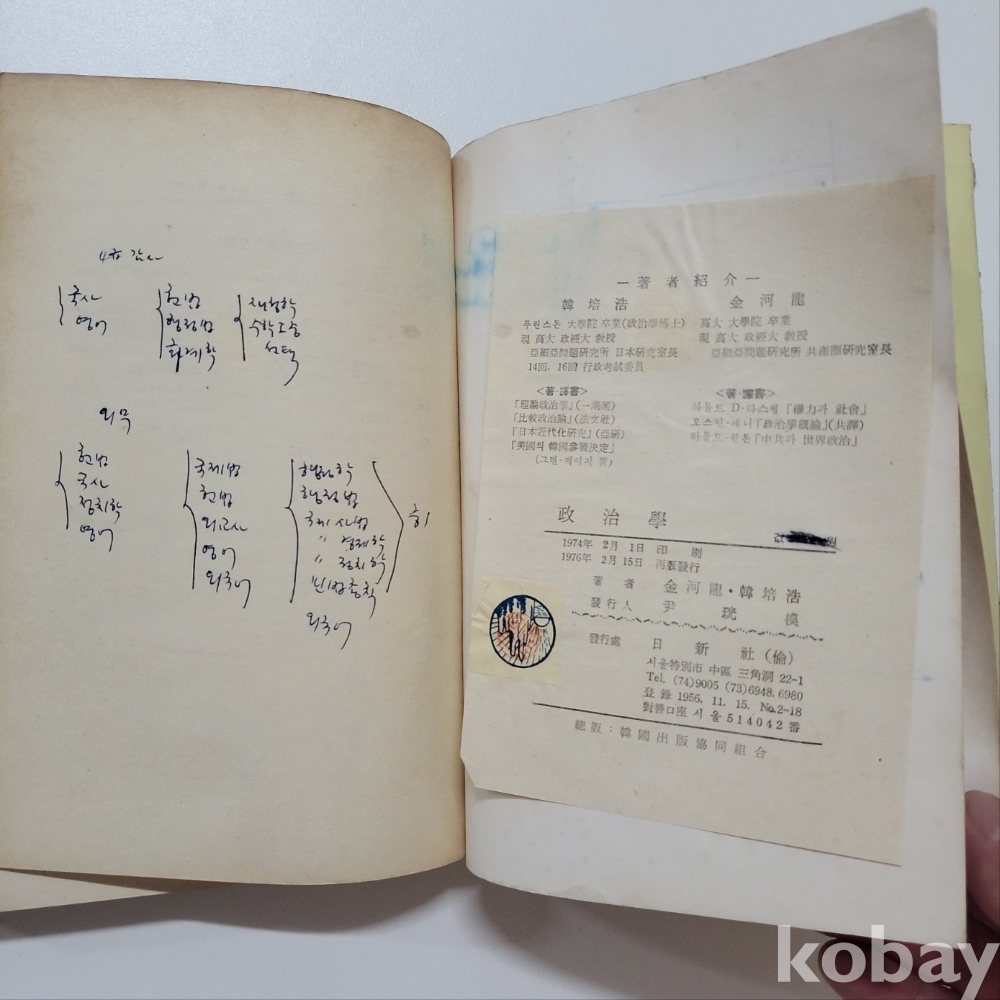 4급 감사
국사
영어
헌법
행정법
회계학
재정학
선택
외무
헌법
국사
정치학
영어
국제법
헌법
외교사
영어
외국어
행정학
행정법
국제사법
〃 경제학
〃 정치학
민법총칙
외국어
—著者紹介—
韓培浩
프린스톤 大學院 卒業(政治學博士)
現 高大 政經大 敎授
亞細亞問題硏究所 日本硏究室長
14回, 16回 行政考試委員
<著·譯書>
「理論政治學」(一潮閣)
「比較政治論」(法文社)
「日本近代化硏究」(亞硏)
「美國의 韓國參戰決定」
(그렌·페이지 著)
金河龍
高大 大學院 卒業
現 高大 政經大 敎授
亞細亞問題硏究所 共產圈硏究室長
<著·譯書>
하롤드 D·라스웰 「權力과 社會」
오스틴·래니 「政治學槪論」(共譯)
하롤드·힌튼 「中共과 世界政治」
政治學
1974年 2月 1日 印刷
1976年 2月 15日 再版發行
著者 金河龍·韓培浩
發行人 尹珖模
發行處 日新社(倫)
서울特別市 中區 三角洞 22-1
Tel. (74)9005 (73)6948. 6980
登錄 1956. 11. 15. No.2-18
對替口座 서울 514042番
總販:韓國出版協同組合
kobay